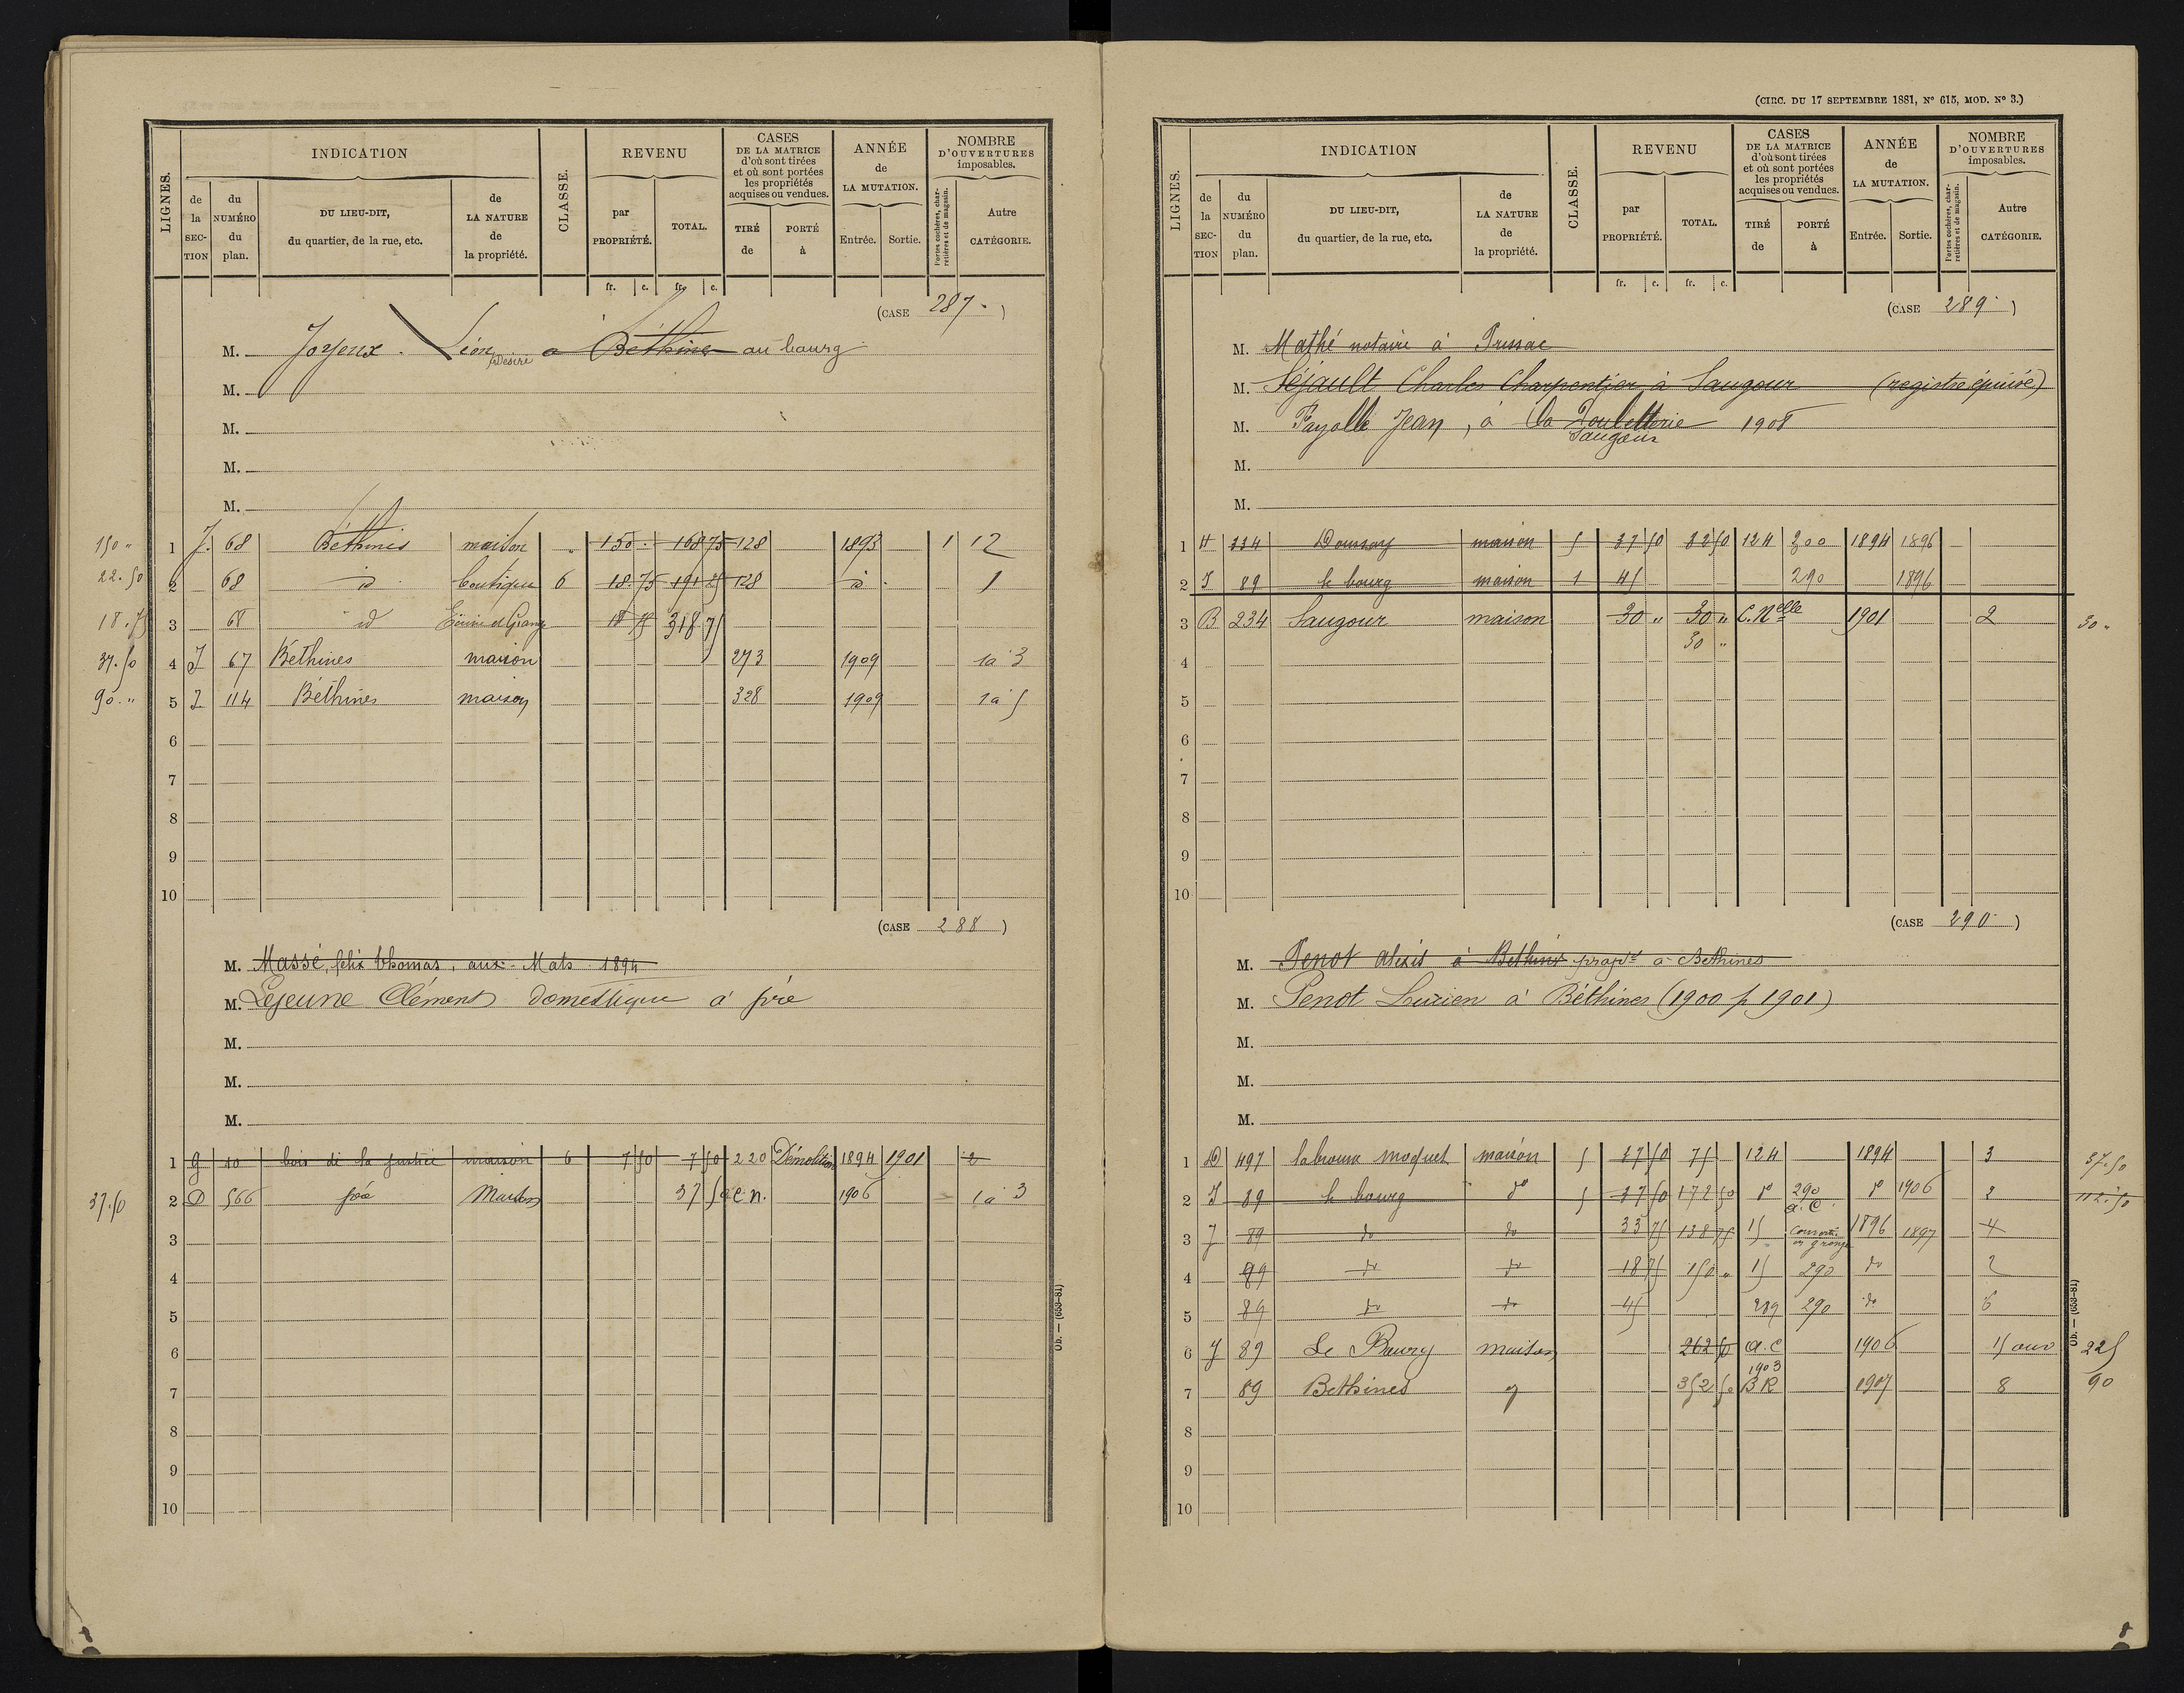 LIGNES.
INDICATION
de la SECTION
du NUMÉRO du plan.
DU LIEU-DIT, du quartier, de la rue, etc.
de LA NATURE de la propriété.
CLASSE.
REVENU
par PROPRIÉTÉ.
TOTAL.
CASES DE LA MATRICE d'où sont tirées et où sont portées les propriétés acquises ou vendues.
TIRÉ de
PORTÉ à
ANNÉE de LA MUTATION.
Entrée.
Sortie.
NOMBRE D'OUVERTURES imposables.
Portes cochères, charretières et de magasin.
Autre CATÉGORIE.
fr. c. fr. c.
(CASE 287.)
M. Joyeux. Léon Désiré à Béthines au bourg
M.
M.
M.
M.
150 " 1 J. 68 Béthines maison " 150 . 168 75 128 1893 1 12
22.50 2 68 id boutique 6 18.75 191 25 128 id. 1
18.75 3 68 id Ecurie et Grange 18 75 318 75
37.50 4 J 67 Béthines maison 273 1909 1 à 3
90." 5 J 114 Béthines maison 328 1909 1 à 5
6
7
8
9
10
(CASE 288)
M. Massé, felix thomas, aux Mats 1894
M. Lejeune Clément domestique à pré
M.
M.
M.
1 G 10 bois de la justice maison 6 7 50 7 50 220 Démolition 1894 1901 2
37.50 2 D 566 Maison 37 50 C.n. 1906 1 à 3
3
4
5
6
7
8
9
10
Ob. — (653-81)
(CIRC. DU 17 SEPTEMBRE 1881, Nº 615, MOD. Nº 3.)
LIGNES.
INDICATION
de la SECTION
du NUMÉRO du plan.
DU LIEU-DIT, du quartier, de la rue, etc.
de LA NATURE de la propriété.
CLASSE.
REVENU
par PROPRIÉTÉ.
TOTAL.
CASES DE LA MATRICE d'où sont tirées et où sont portées les propriétés acquises ou vendues.
TIRÉ de
PORTÉ à
ANNÉE de LA MUTATION.
Entrée.
Sortie.
NOMBRE D'OUVERTURES imposables.
Portes cochères, charretières et de magasin.
Autre CATÉGORIE.
fr. c. fr. c.
(CASE 289)
M. Mathé notaire à Prissac
M. Charles Charpentier à Saugour (registre épuisé)
M. Fayolle Jean, à la 1908
Saugour
M.
M.
1 H 334 maison 5 37 50 82 50 124 200 1894 1896
2 J 89 le bourg maison 1 45 290 1896
3 B 234 Saugour maison 30 " 30 " C. Nelle 1901 2 30 "
4 30 "
5
6
7
8
9
10
(CASE 290)
M. Penot Alexis à Béthines propre à Béthines
M. Penot Lucien à Béthines (1900 p 1901)
M.
M.
M.
1 D 497 maison 5 37 50 75 124 1894 3 37.50
2 J 89 le bourg do 5 37 50 172 50 do 290 a. C do 1906 2 112.50
3 J 89 do do 33 75 138 75 15 convertie en grange 1896 1897 4
4 89 do do 18 75 150 " 15 290 do 2
5 89 do do 45 289 290 do 6
6 J 89 Le Bourg maison 262 50 a. C 1906 15 ouv 225
7 89 Béthines 352 50 1903 BR 1907 8 90
8
9
10
Ob. — (653-81)